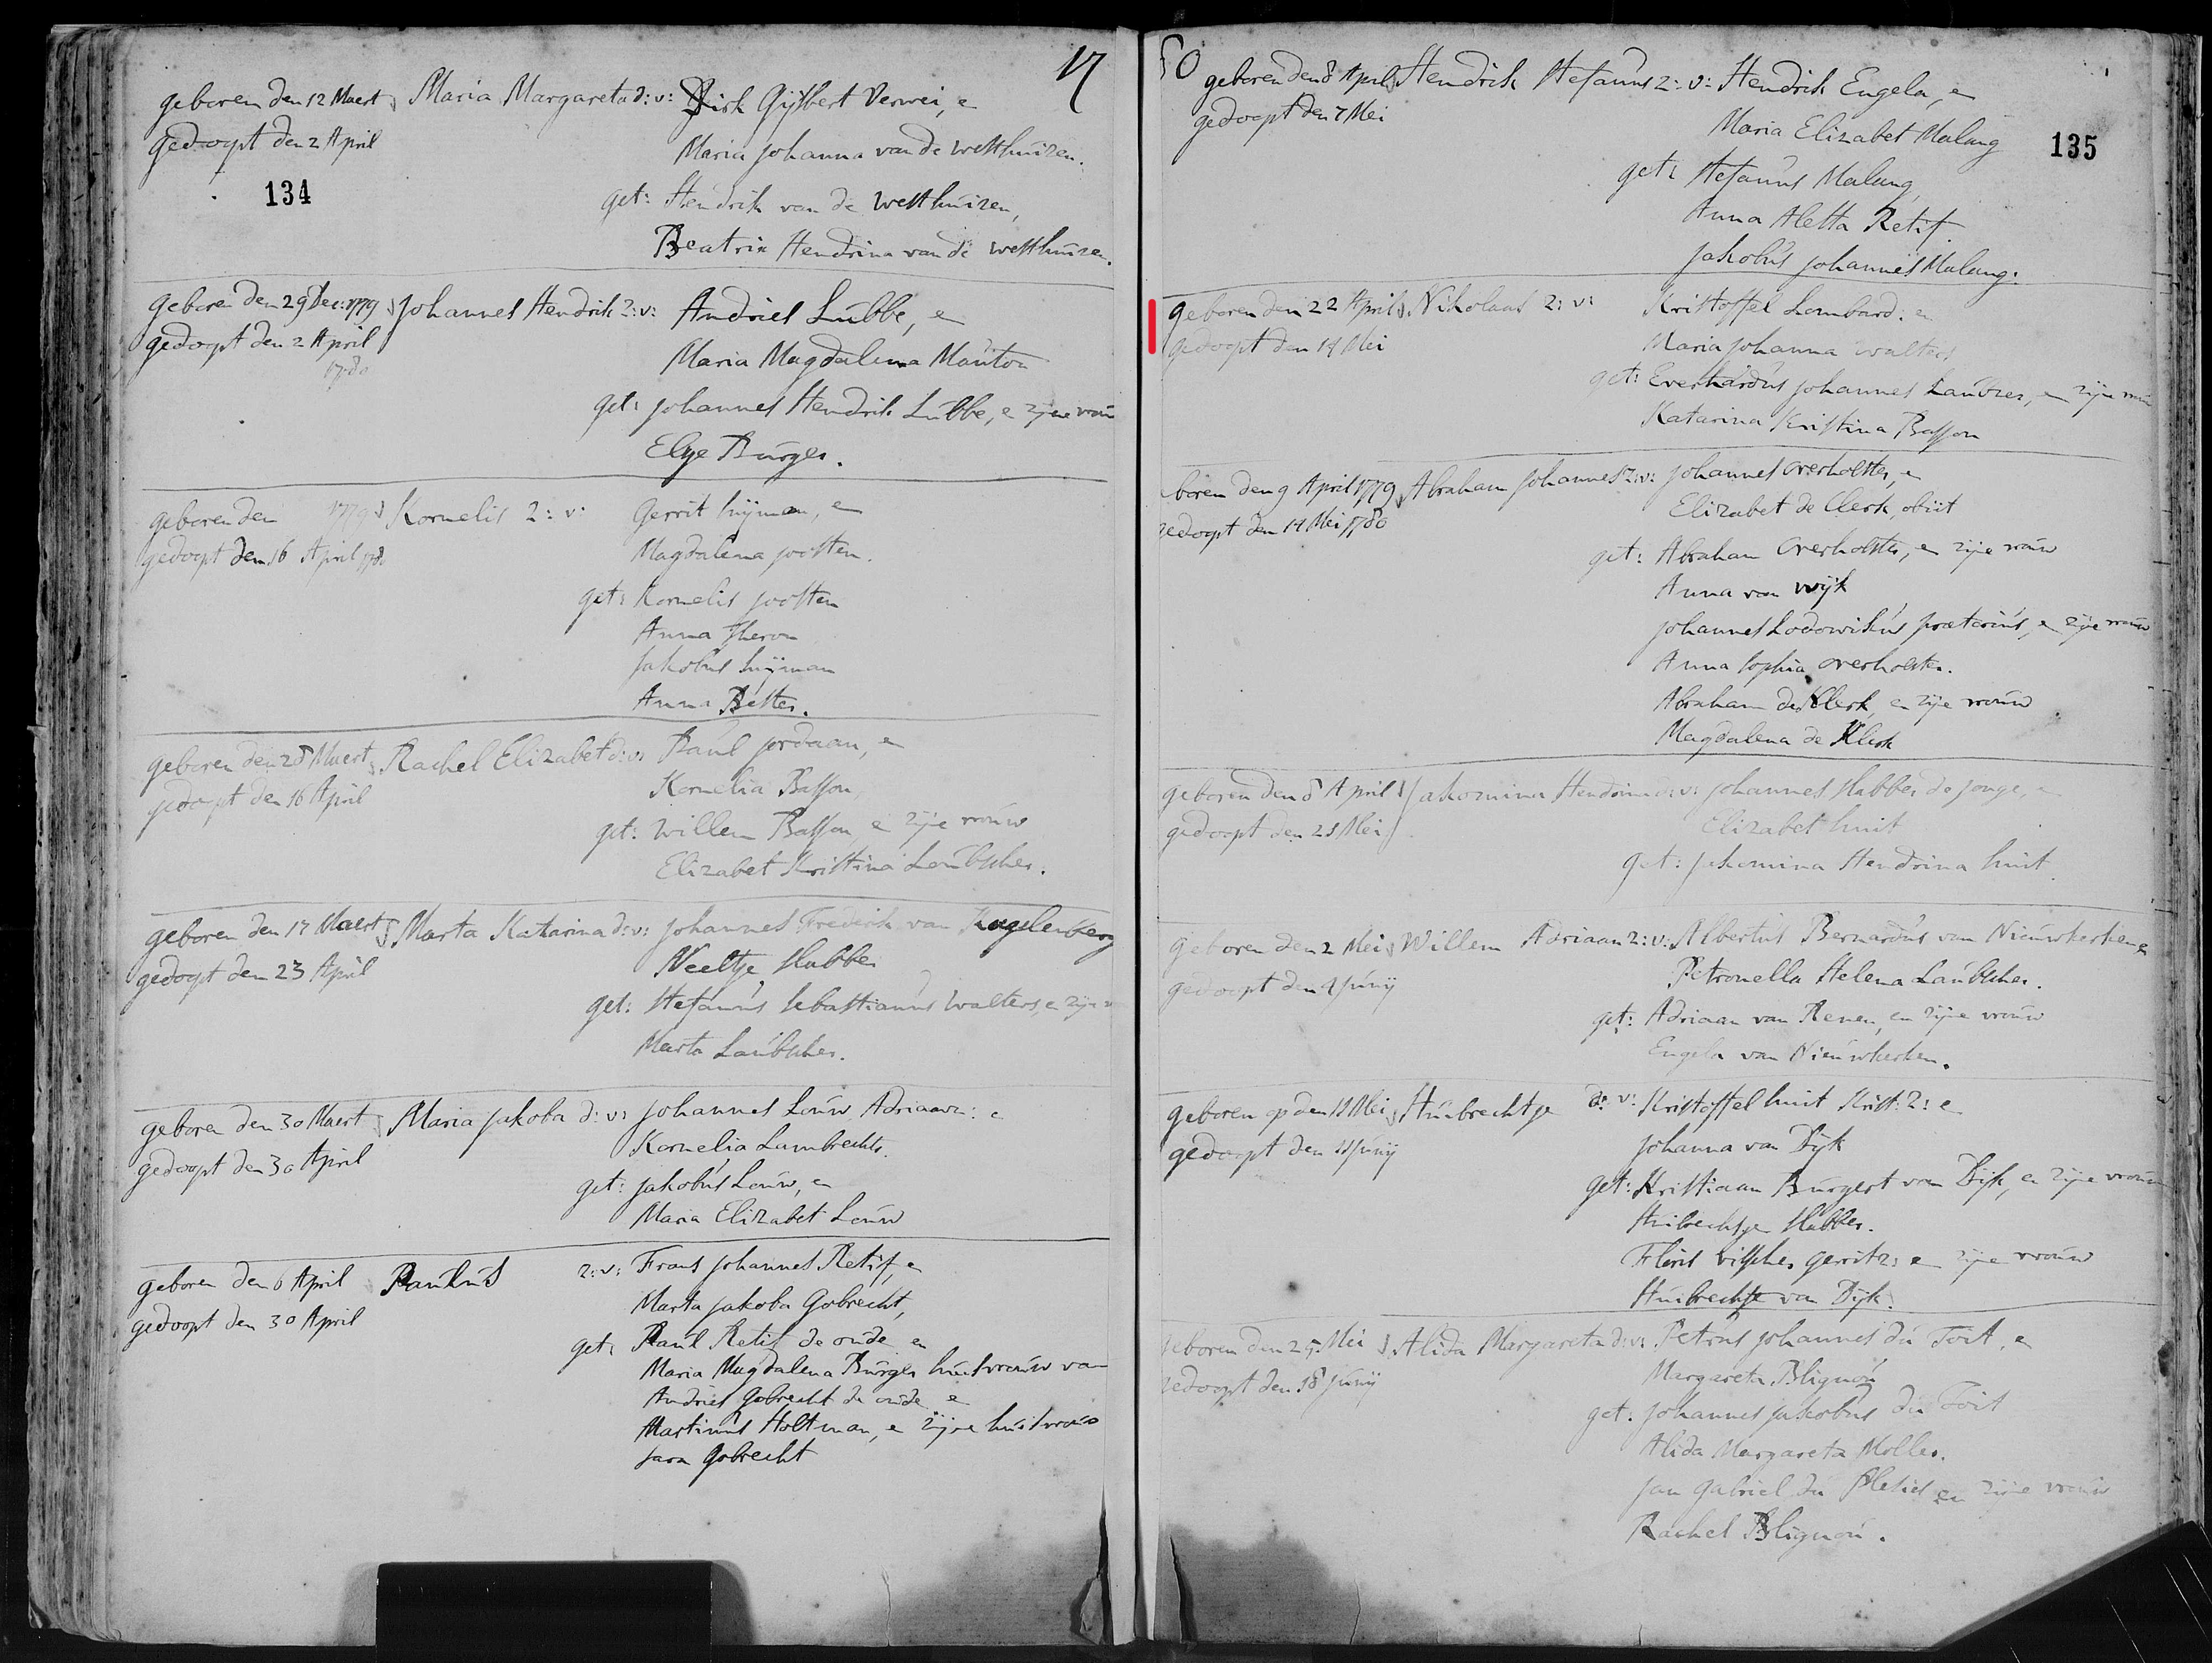 17
geboren den 12 Maert Maria Margareta d: v: Dirk Gijsbert Verwei, e
gedoopt den 2 April
Maria Johanna van de Westhuizen.
134
get: Hendrik van de Westhuizen,
Beatrix Hendrina van de Westhuizen.
geboren den 29 Dec: 1779 Johannes Hendrik Z: v: Andries Lubbe, e
gedoopt den 2 April
1780
Maria Magdalena Mouton
get: Johannes Hendrik Lubbe, e zijne vrou
Elsje Burger.
geboren den 1779 Kornelis Z: v: Gerrit Snijman, e
gedoopt den 16 April 1780
Magdalena Joosten.
get: Kornelis Joosten
Anna Theron
Jakobus Snijman
Anna Better.
geboren den 28 Maert Rachel Elizabet d: v: Paul Jordaan, e
gedoopt den 16 April
Kornelia Basson
get: Willem Basson, e zijne vrouw
Elizabet Kristina Loubscher.
geboren den 17 Maert Marta Katarina d: v: Johannes Frederik van Kugelenberg
gedoopt den 23 April
Neeltje Slabber
get: Stefanus Sebastianus Walters, e zijne
Marta Laubscher.
geboren den 30 Maert Maria Jakoba d: v: Johannes Louw Adriaanz: e
gedoopt den 30 April
Kornelia Lambrechts.
get: Jakobus Louw, en
Maria Elizabet Louw
geboren den 6 April Paulus Z: v: Frans Johannes Retif, en
gedoopt den 30 April
Marta Jakoba Gobrecht,
get: Paul Retif de oude en
Maria Magdalena Burger huisvrouw van
Andries Gobrecht de oude e
Martinus Holtman, e zijne huisvrou
Sara Gobrecht
80
geboren den 8 April Hendrik Stefanus Z: v: Hendrik Engela, en
gedoopt den 7 Mei
Maria Elizabet Malang
135
get: Stefanus Malang
Anna Aletta Retif
Jakobus Johannes Malang.
geboren den 22 April Nikolaas Z: v: Kristoffel Lombard: e
gedoopt den 14 Mei
Maria Johanna Walters
get: Everhardus Johannes Laubser, en zijne vrou
Katarina Kristina Basson
boren den 9 April 1779 Abraham Johannes Z: v: Johannes Overholster, e
gedoopt den 14 Mei 1780
Elizabet de Clerk, obiit
get: Abraham Overholster, en zijne vrouw
Anna van Wijk
Johannes Lodowikus Praetorius, e zijne vrouw
Anna Sophia Overholster.
Abraham de Klerk, en zijne vrouw
Magdalena de Klerk
geboren den 8 April Jakomina Hendrina d: v: Johannes Slabber de Jonge, e
gedoopt den 21 Mei
Elizabet Smit
get: Jakomina Hendrina Smit
geboren den 2 Mei Willem Adriaan Z: v: Albertus Bernardus van Nieuwkerken e
gedoopt den 4 Junij
Petronella Helena Laubscher.
get: Adriaan van Renen, en zijne vrouw
Engela van Nieuwkerken.
geboren op den 11 Mei Huibrechtje d: v: Kristoffel Smit Krist: Z: e
gedoopt den 11 Junij
Johanna van Dijk
get: Kristiaan Burgert van Dijk, en zijne vrouw
Huibrechtje Slabber.
Floris Visscher Gerritz: e zijne vrouw
Huibrechtje van Dijk.
geboren den 25 Mei Alida Margareta d: v: Petrus Johannes du Toit, e
gedoopt den 18 Junij
Margareta Blignou
get: Johannes Jakobus du Toit
Alida Margareta Moller.
Jan Gabriel du Plesies en zijne vrouw
Rachel Blignou.